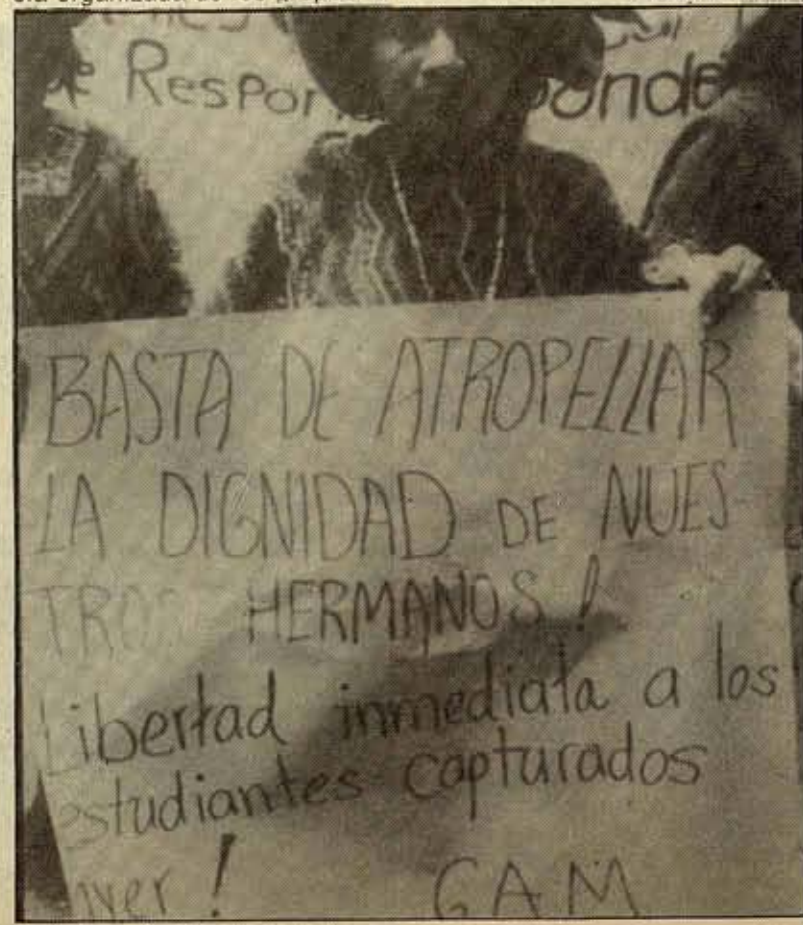 de Respon onde
BASTA DE ATROPELLAR
LA DIGNIDAD DE NUES-
TROS HERMANOS!
Libertad inmediata a los
estudiantes capturados
ayer! GAM